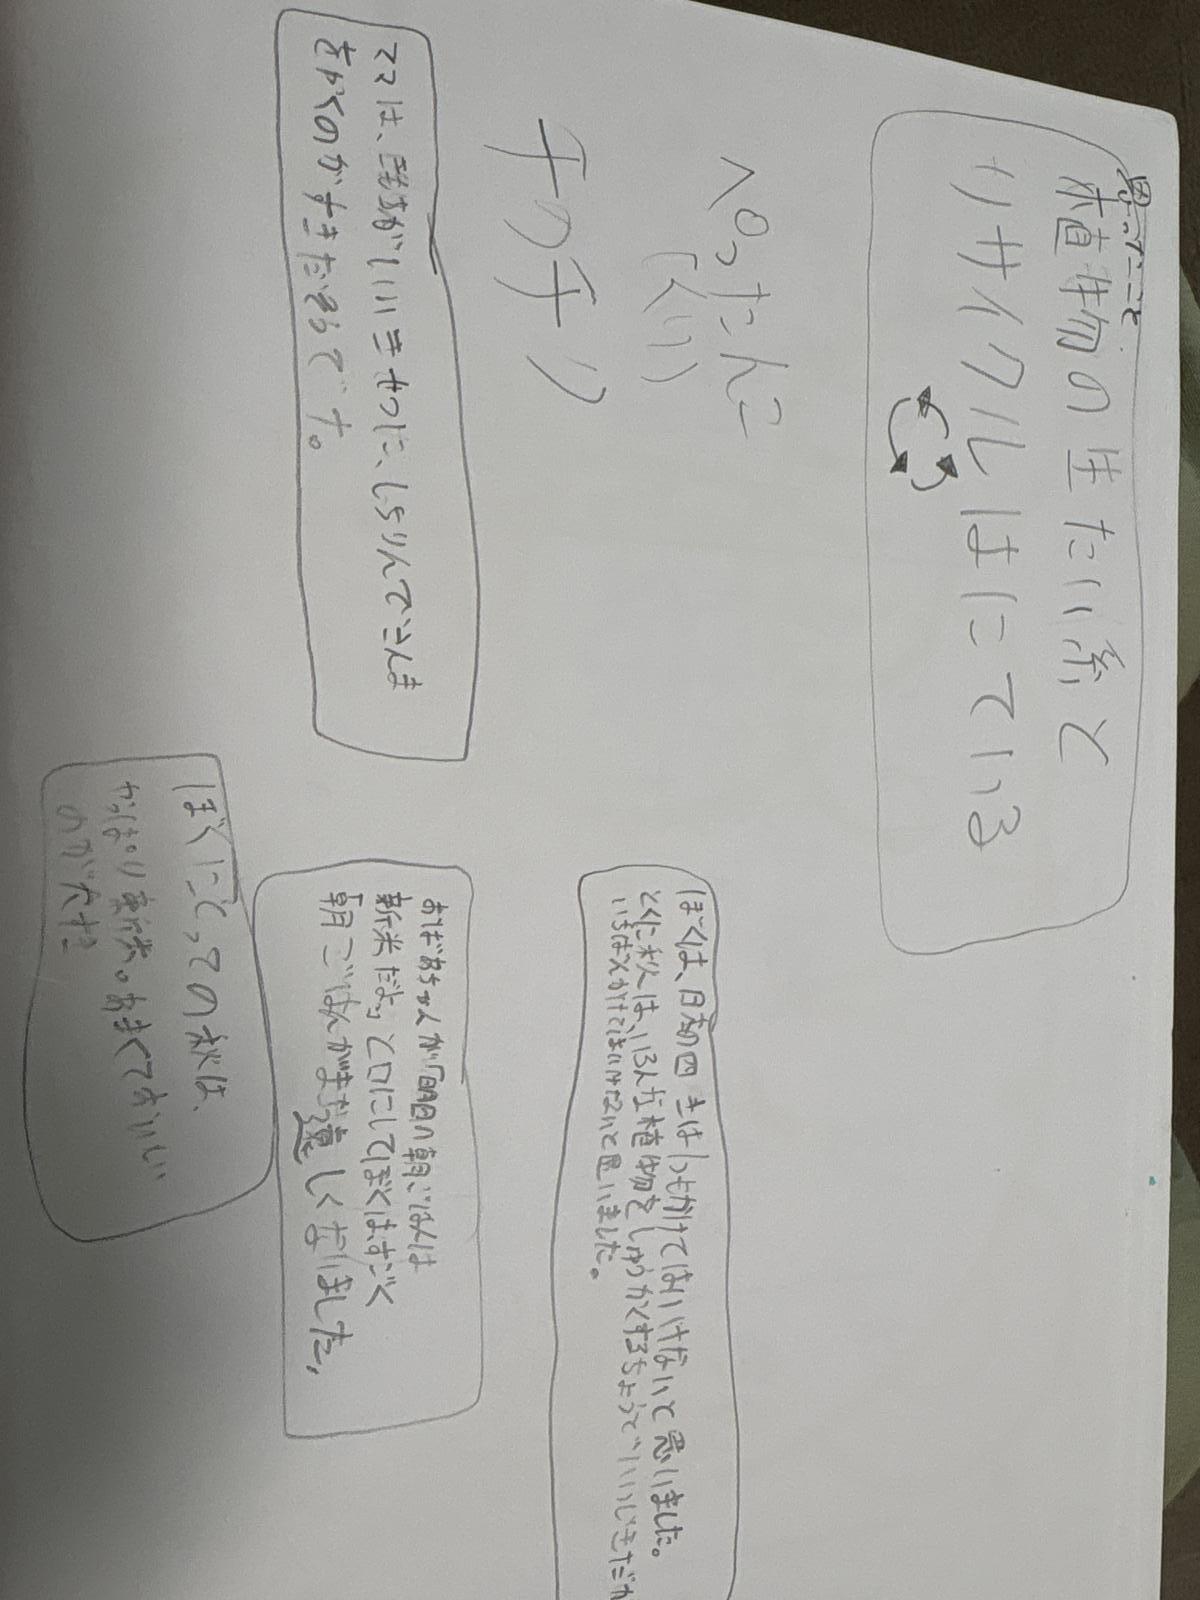 思ったこと
植物の生たい系と
リサイクルはにている
ぺったんこ
(くり)
チクチク
ママは、
がいいきせつに、しちりんでさんま
をやくのがすきだからです。
ぼくは、日本の四きは1つもかけてはいけないと思いました。
とくに秋は、いろんな植物をしゅうかくするちょうどいいじきだから
いちばんかけてはいけないと思いました。
おばあちゃんが「明日の朝ごはんは
新米だよ」と口にしてぼくはすごく
朝ごはんがまち遠しくなりました。
ぼくにとっての秋は、
やっぱり新米。あまくておいしい
のが大すき